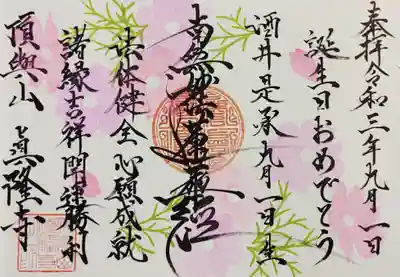 奉拝 令和三年九月一日
誕生日おめでとう
酒井是承 九月一日生
南無妙法蓮華経
法体健全 心願成就
諸縁吉祥 開運勝利
頂興山 眞隆寺